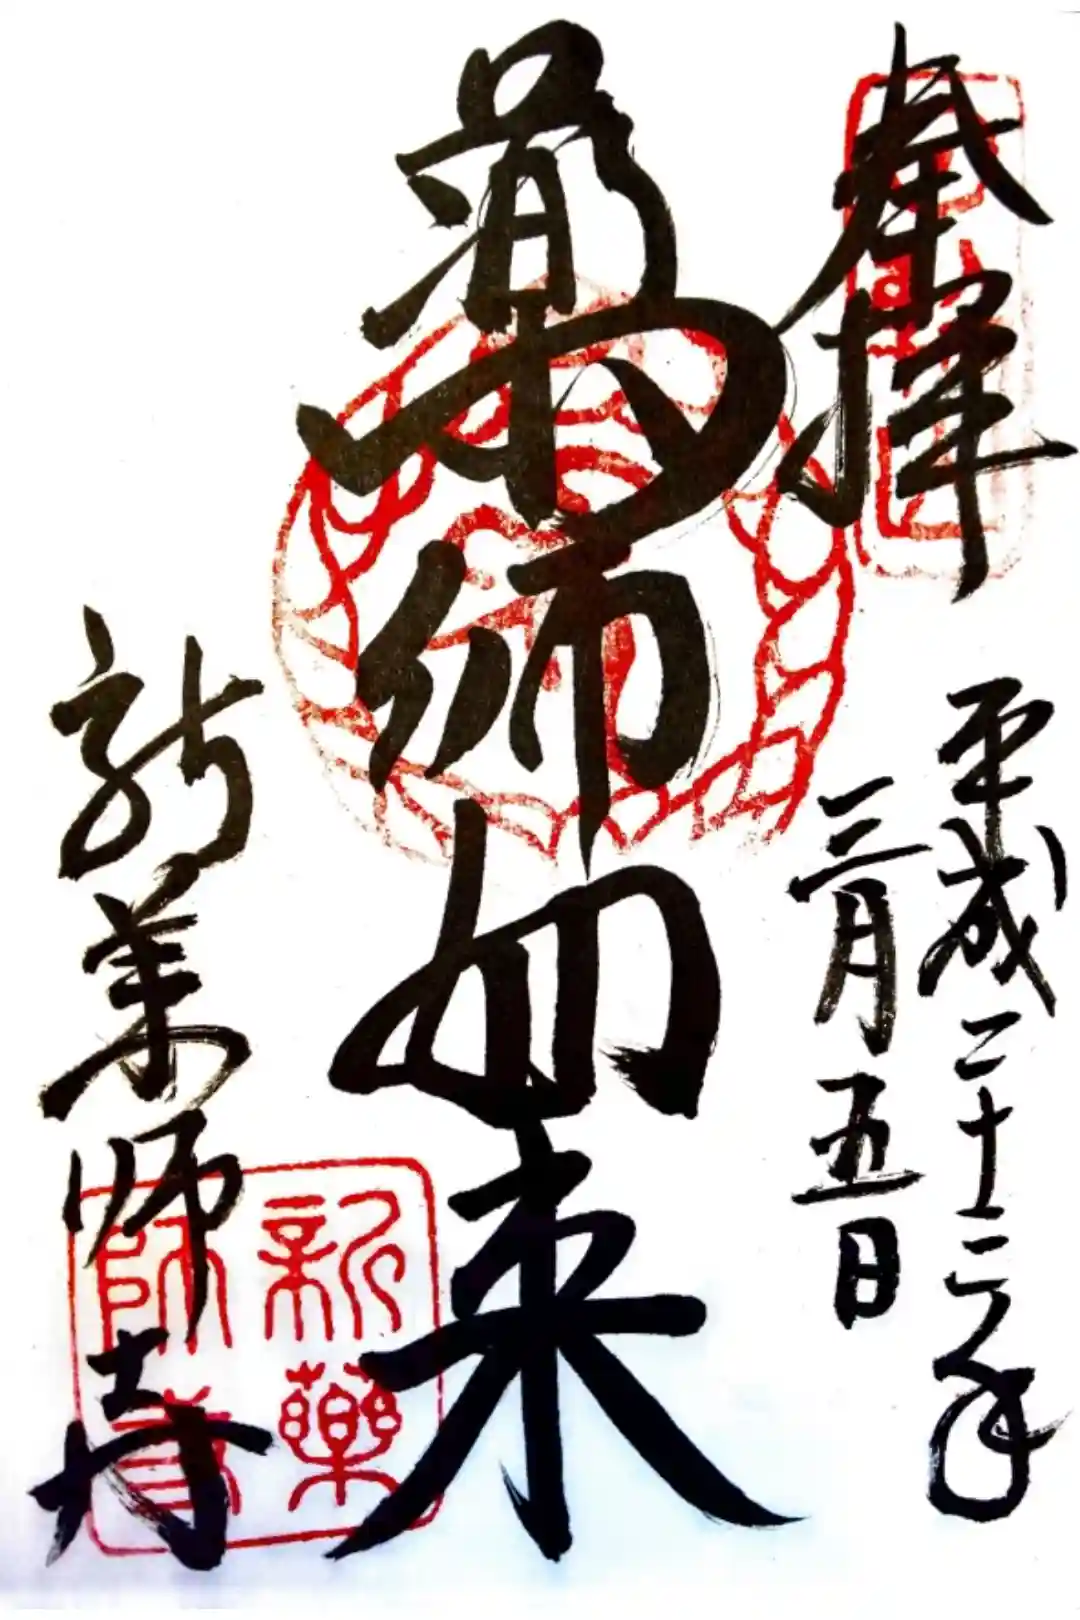 奉拝
平成二十三年
三月五日
薬師如来
新薬師寺
新薬師寺